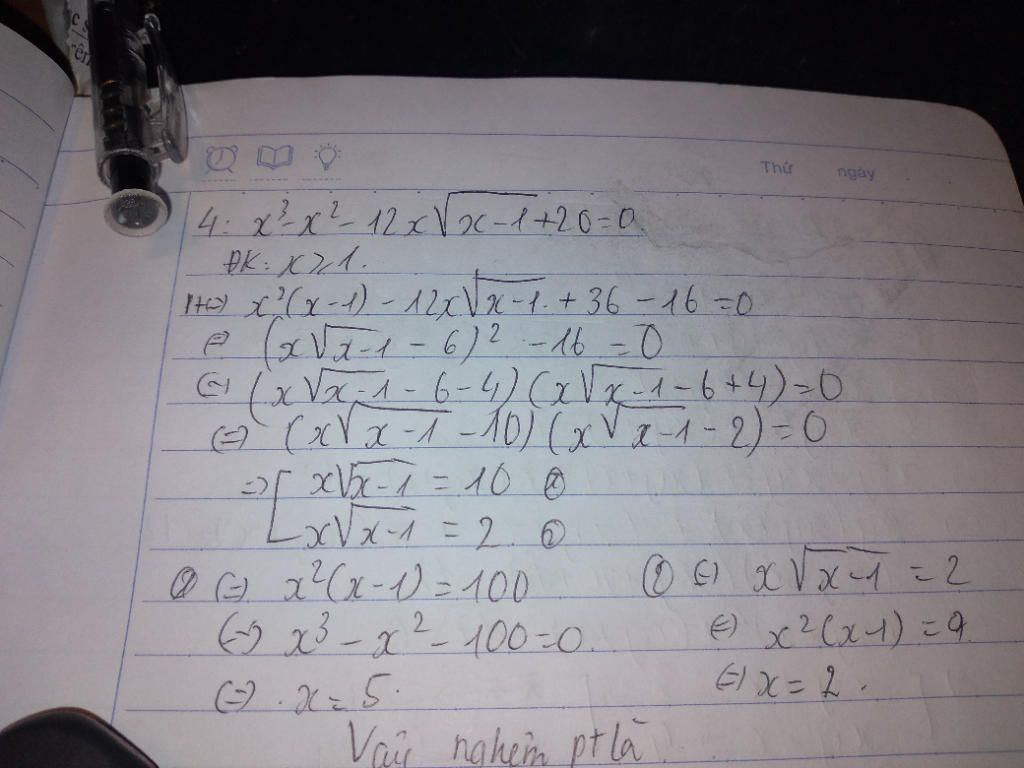 Thứ ngày
4: x³-x²-12x√(x-1)+20=0
ĐK: x≥1.
x²(x-1)-12x√(x-1)+36-16=0
(x√(x-1)-6)²-16=0
(=) (x√(x-1)-6-4)(x√(x-1)-6+4)=0
(=) (x√(x-1)-10)(x√(x-1)-2)=0
=> [ x√(x-1)=10
x√(x-1)=2
(=) x²(x-1)=100 (=) x√(x-1)=2
(=) x³-x²-100=0 (=) x²(x-1)=4
(=) x=5. (=) x=2.
Vậy nghệm pt là